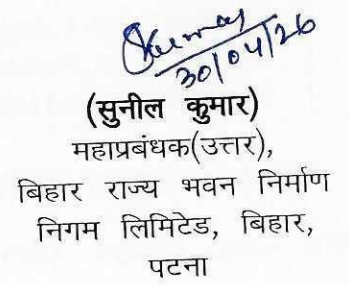 Skumar
30/04/26
(सुनील कुमार)
महाप्रबंधक(उत्तर),
बिहार राज्य भवन निर्माण
निगम लिमिटेड, बिहार,
पटना